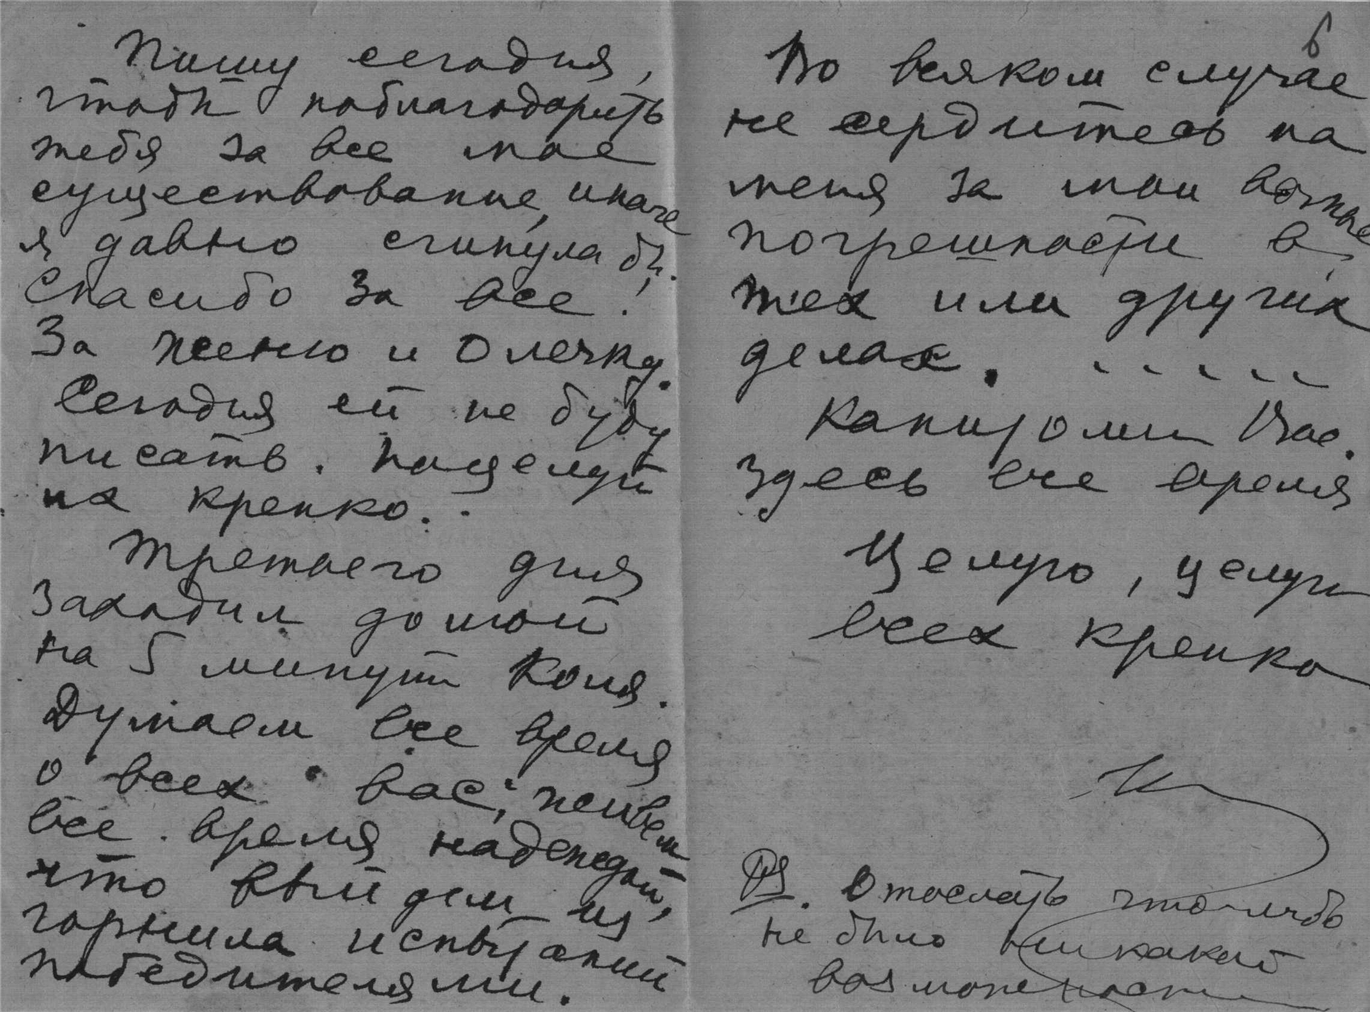 Пишу сегодня,
чтобы поблагодарить
тебя за все мое
существование, иначе
я давно сгинула бы.
Спасибо за все!
За Женю и Олечку.
Сегодня ей не буду
писать. Поцелуй
их крепко.
Третьего дня
заходил домой
на 5 минут Коля.
Думаем все время
о всех вас, живем
все время надеждой,
что выйдем из
горнила испытаний
победителями.
6
Во всяком случае
не сердитесь на
меня за мои
погрешности в
тех или других
делах.
Вас.
Здесь все время
Целую, целую
всех крепко
PS. Отослать что-либо
не было никакой
возможности